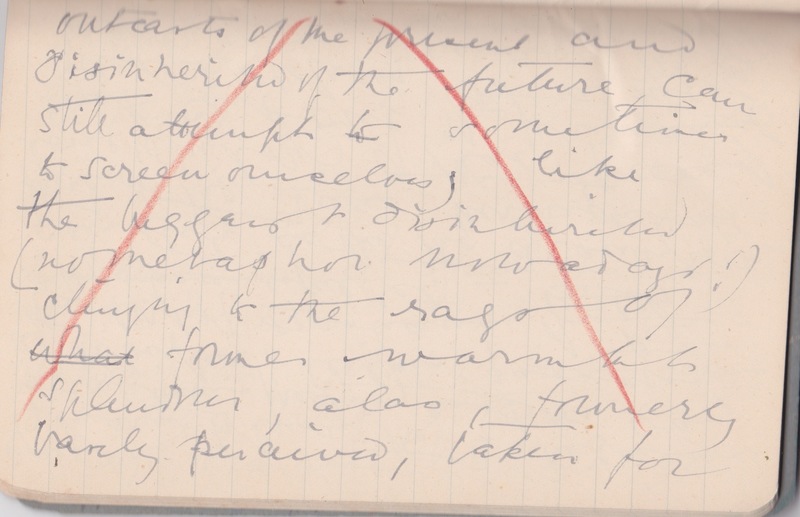 outcasts of the present and
disinherited of the future, can
still attempt to sometimes
to screen ourselves, like
the beggars & disinherited
(no metaphor nowadays!)
clinging to the rags of
what former warmth &
splendour, alas, formerly
barely perceived, taken for